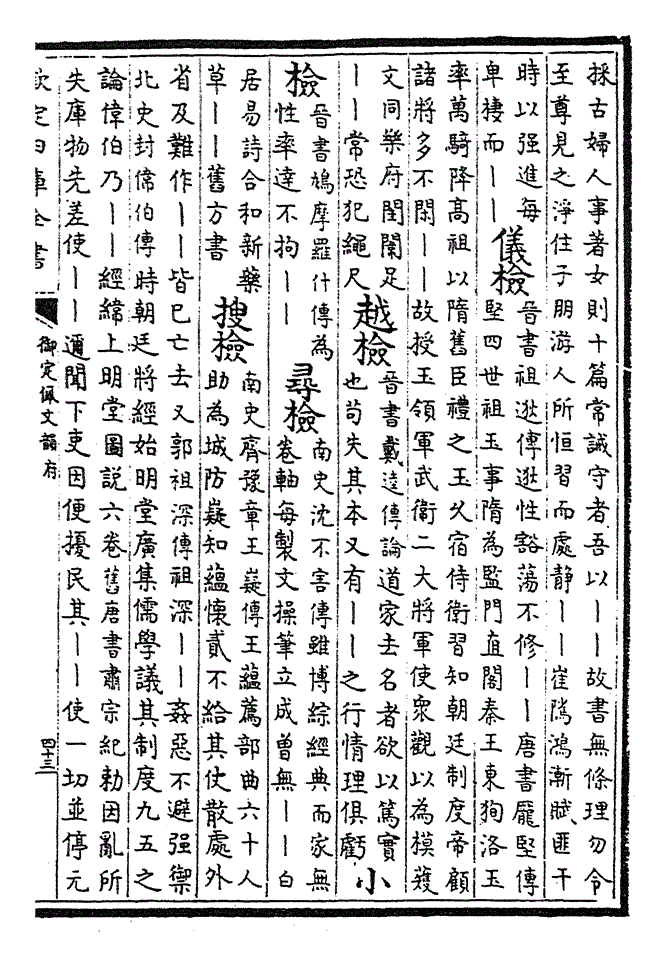 採古婦人事著女則十篇常誡守者吾以丨丨故書無條理勿令
至尊見之淨住子朋游人所恒習而處静丨丨崔隲鴻漸賦匪干
時以强進每
卑棲而丨丨
儀檢
晉書祖逖傳逖性豁蕩不修丨丨唐書龐堅傳
堅四世祖玉事隋為監門直閣秦王東狥洛玉
率萬騎降高祖以隋舊臣禮之玉乆宿侍衛習知朝廷制度帝顧
諸將多不閑丨丨故授玉領軍武衛二大將軍使衆觀以為模矱
文同樂府閨闌足
丨丨常恐犯繩尺
越檢
晉書戴逵傳論道家去名者欲以篤實
也苟失其本又有丨丨之行情理俱虧
小
檢
晉書鳩摩羅什傳為
性率達不拘丨丨
尋檢
南史沈不害傳雖博綜經典而家無
卷軸每製文操筆立成曾無丨丨白
居易詩合和新藥
草丨丨舊方書
搜檢
南史齊豫章王嶷傳王蘊薦部曲六十人
助為城防嶷知蘊懷貳不給其仗散處外
省及難作丨丨皆已亡去又郭祖深傳祖深丨丨姦惡不避强禦
北史封偉伯傳時朝廷將經始明堂廣集儒學議其制度九五之
論偉伯乃丨丨經緯上明堂圖説六卷舊唐書肅宗紀勅因亂所
失庫物先差使丨丨邇聞下吏因便擾民其丨丨使一切並停元
欽定四庫全書
御定佩文韻府
四十三